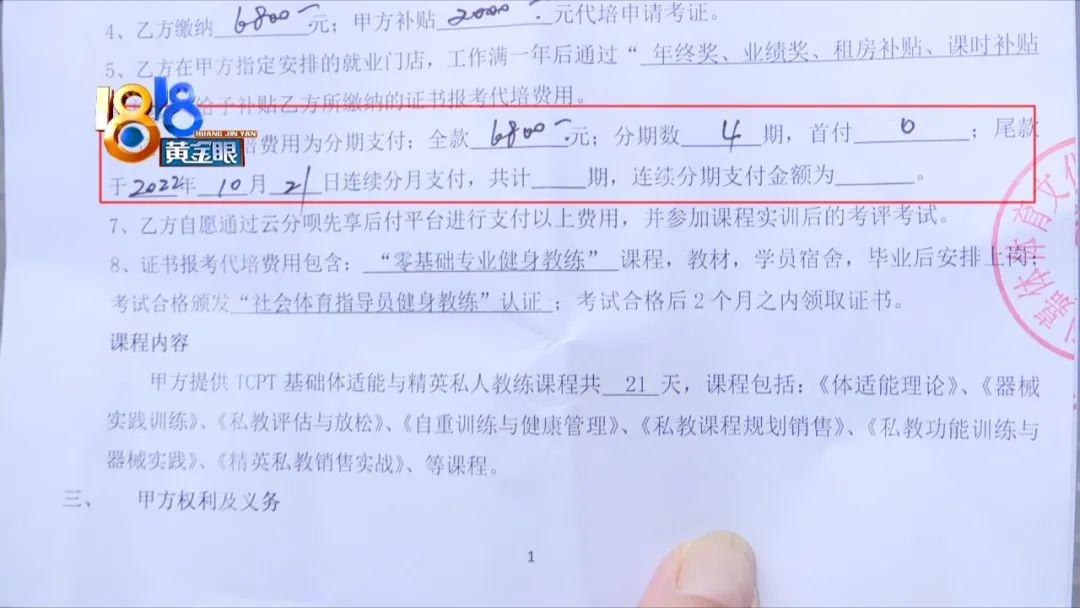 4、乙方缴纳 6800 元；甲方补贴 2000 元代培申请考证。
5、乙方在甲方指定安排的就业门店，工作满一年后通过“ 年终奖、业绩奖、租房补贴、课时补贴
给予补贴乙方所缴纳的证书报考代培费用。
1818
HUANG JIN YAN
黄金眼
费用为分期支付；全款 6800 元；分期数 4 期，首付 0 ；尾款
于2022年 10 月 21 日连续分月支付，共计 期，连续分期支付金额为 。
7、乙方自愿通过云分呗先享后付平台进行支付以上费用，并参加课程实训后的考评考试。
8、证书报考代培费用包含：“零基础专业健身教练” 课程，教材，学员宿舍，毕业后安排上岗；
考试合格颁发“社会体育指导员健身教练”认证 ；考试合格后 2 个月之内领取证书。
课程内容
甲方提供 TCPT 基础体适能与精英私人教练课程共 21 天，课程包括：《体适能理论》、《器械
实践训练》、《私教评估与放松》、《自重训练与健康管理》、《私教课程规划销售》、《私教功能训练与
器械实践》、《精英私教销售实战》、等课程。
三、 甲方权利及义务
1
体育文化